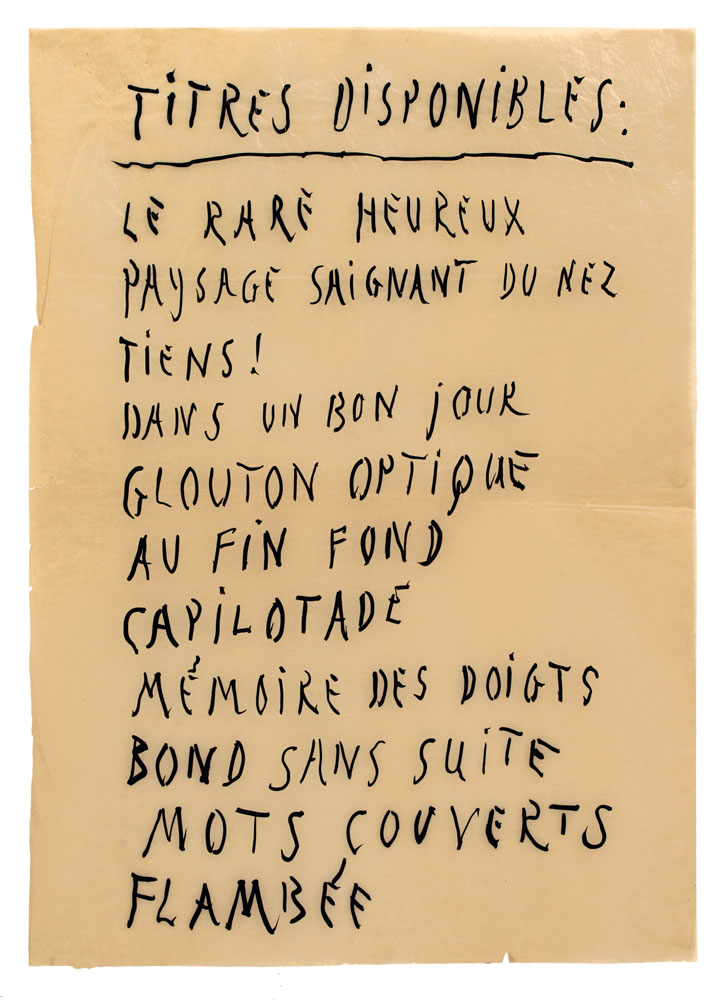 TITRES DISPONIBLES:
LE RARE HEUREUX
PAYSAGE SAIGNANT DU NEZ
TIENS!
DANS UN BON JOUR
GLOUTON OPTIQUE
AU FIN FOND
CAPILOTADE
MÉMOIRE DES DOIGTS
BOND SANS SUITE
MOTS COUVERTS
FLAMBÉE